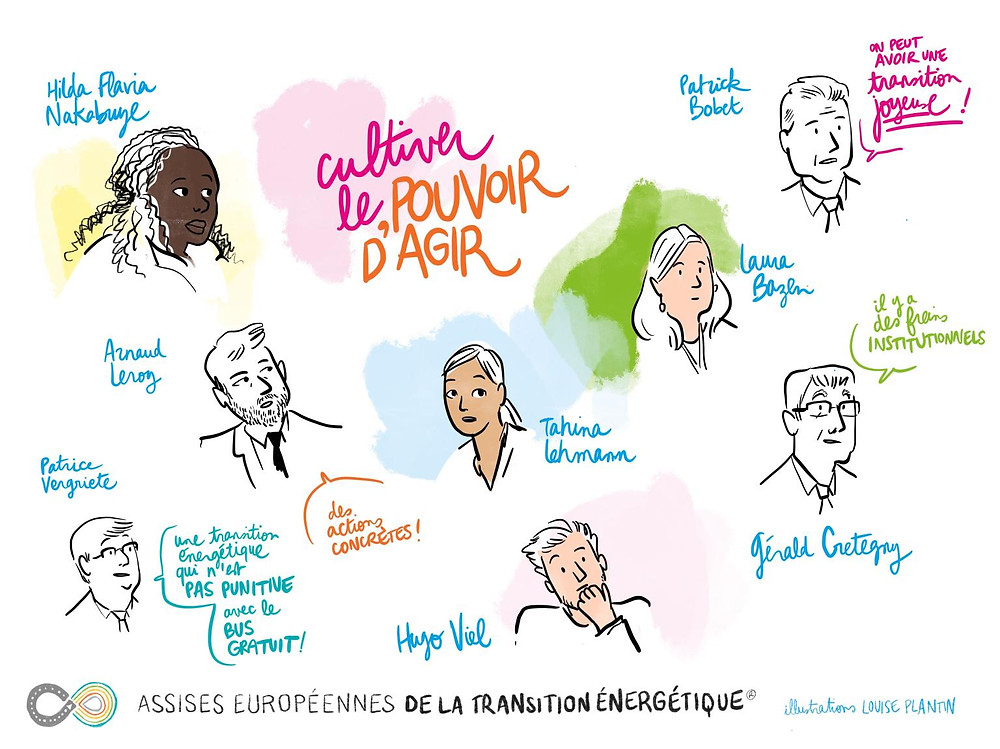 Hilda Flavia
Nakabuye
cultiver
le POUVOIR
D'AGIR
Patrick
Bobet
ON PEUT
AVOIR UNE
transition
joyeuse !
Laura
Bazin
Arnaud
Leroy
Tahina
Lehmann
il y a
des freins
INSTITUTIONNELS
Gérald Cretegny
Patrice
Vergriete
une transition
énergétique
qui n'est
PAS PUNITIVE
avec le
BUS
GRATUIT !
des
actions
CONCRÈTES !
Hugo Viel
ASSISES EUROPÉENNES DE LA TRANSITION ÉNERGÉTIQUE®
illustrations LOUISE PLANTIN